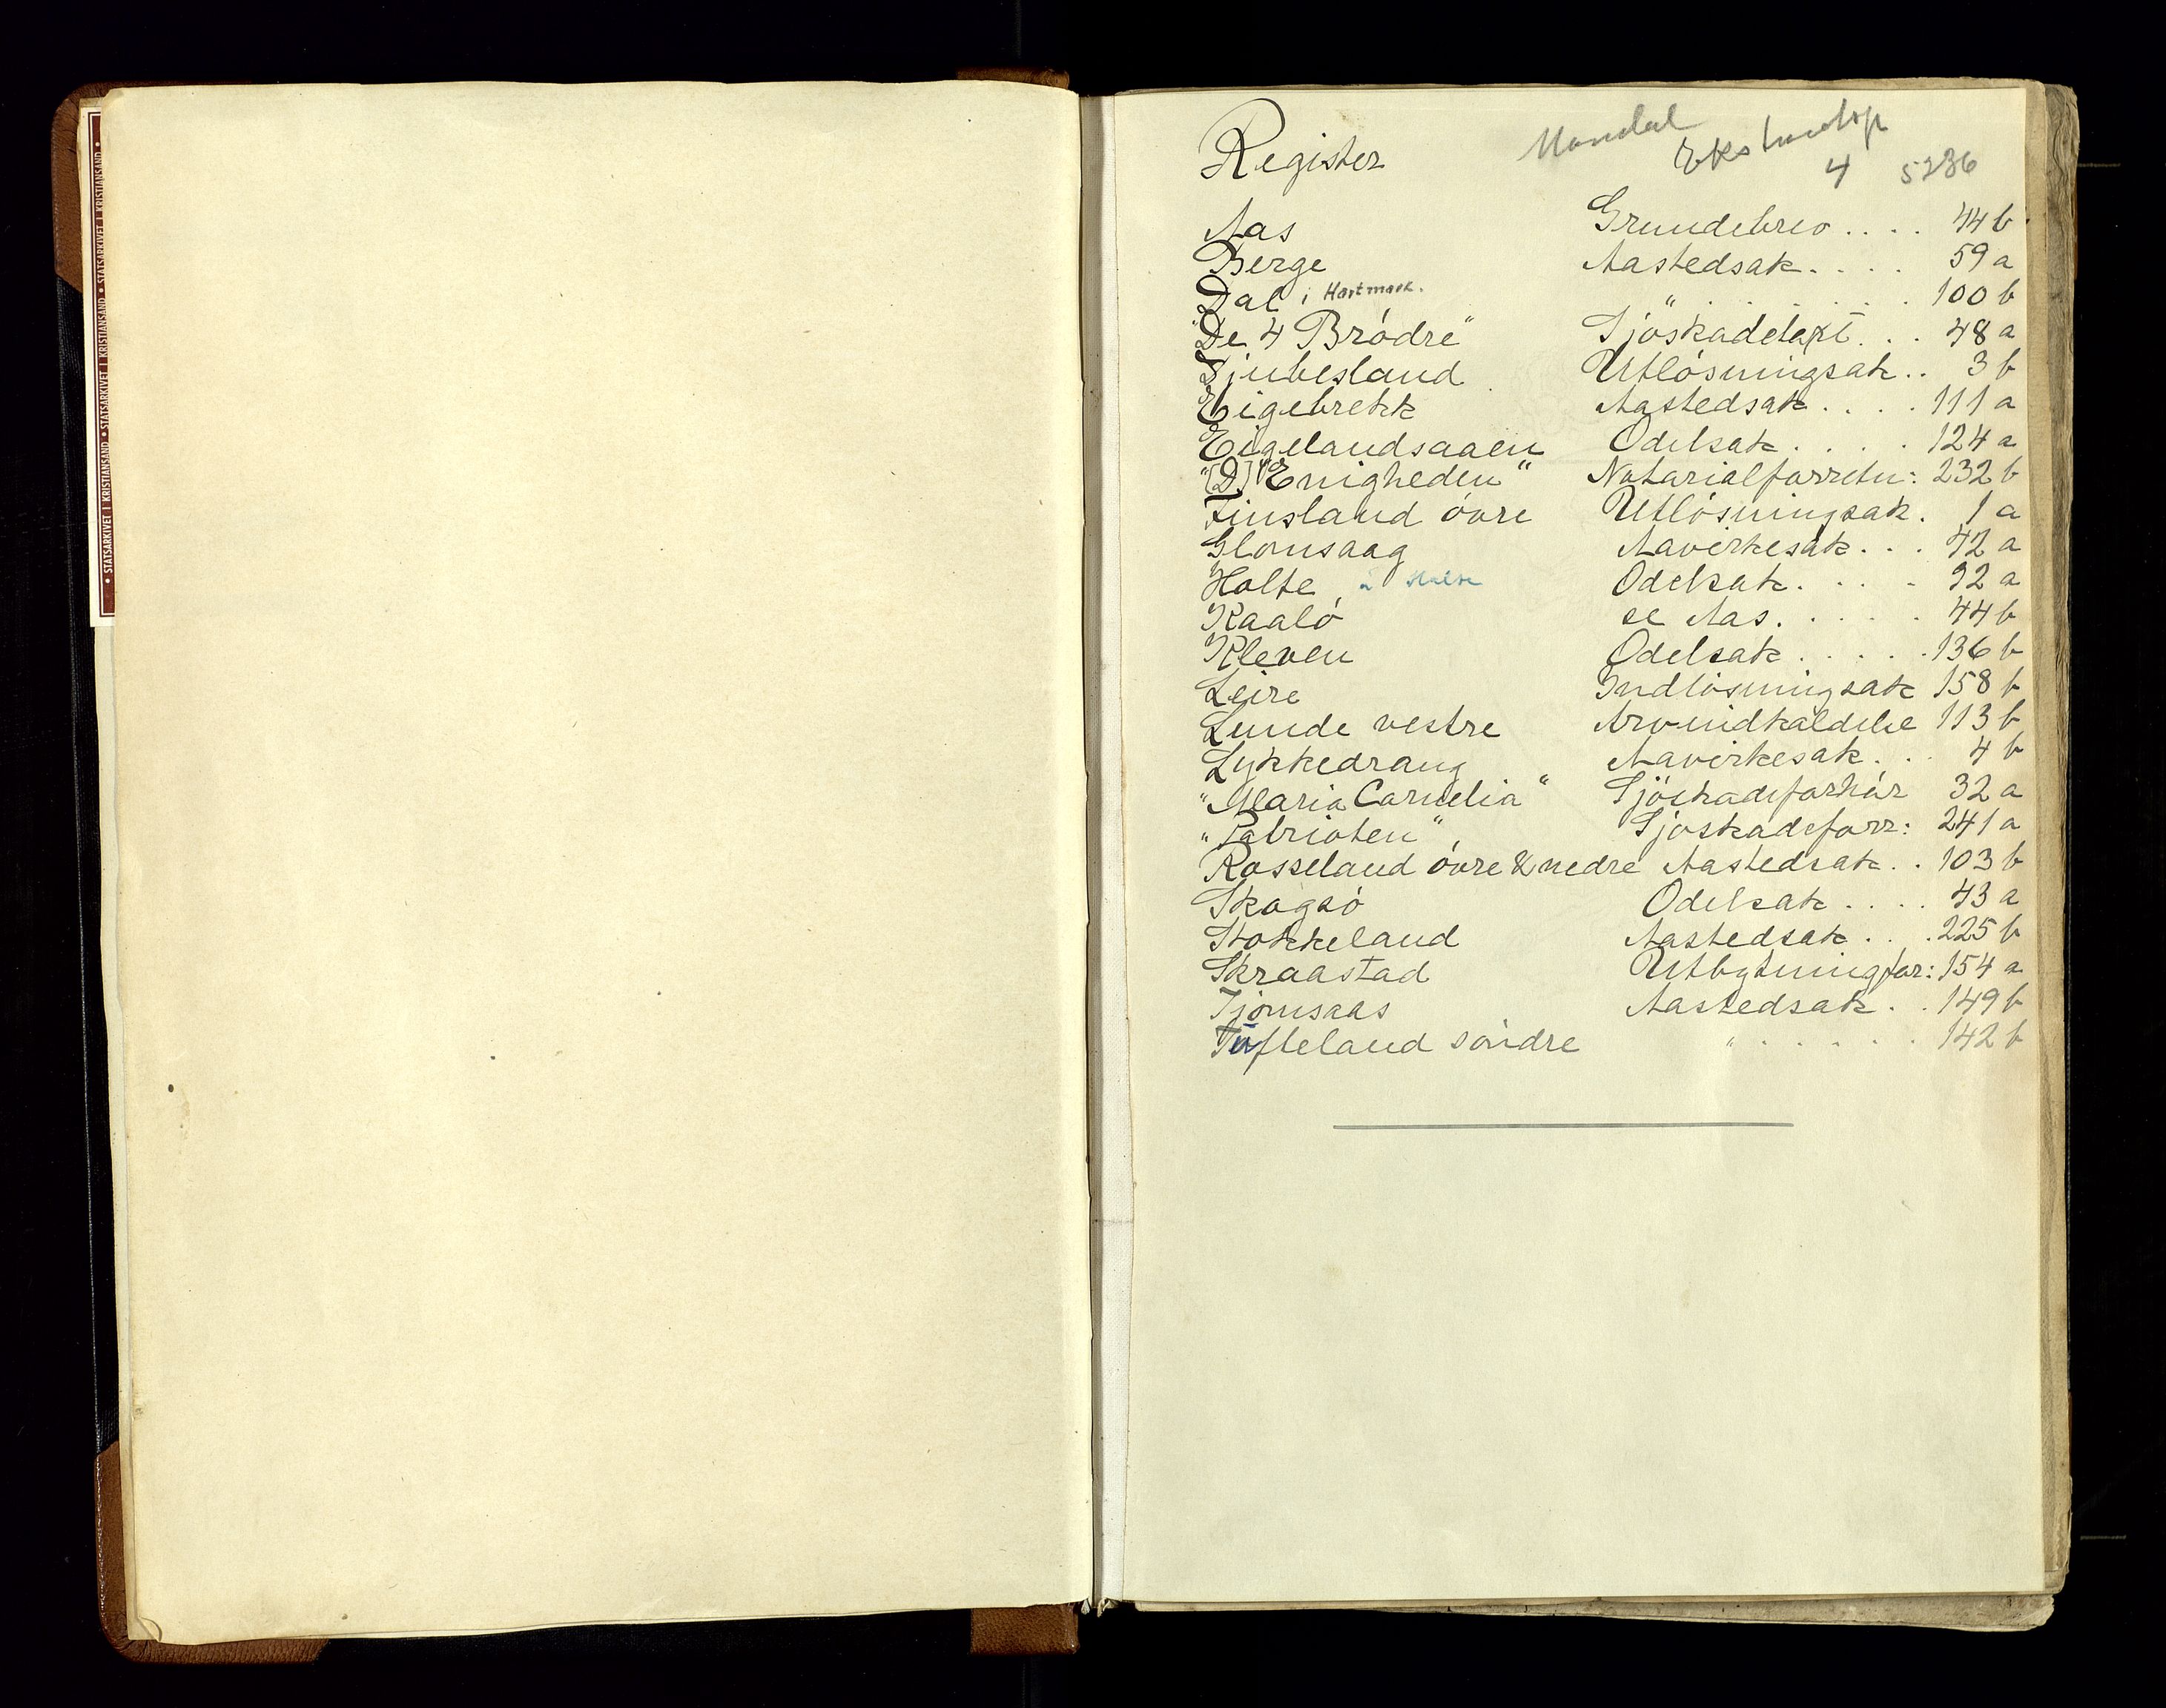 • STATSARKIVET I KRISTIANSAND • STATSARKIVET I KRISTIANSAND • STATSARKIVET I KRISTIANSAND •
Mandal
Register
4 5236
Aas Grundebrev .... 44 b
Berge Aastedsak .... 59 a
Dal i Hartmark. " ...... 100 b
"De 4 Brödre" Sjöskade ... 48 a
Djubesland Utlösningsak .. 3 b
Eigebrekk Aastedsak .... 111 a
Eigelandsaaen Odelsak .... 124 a
"[D.] "Enigheden" Notarialforretn: 232 b
Finsland övre Utlösningsak . 1 a
Glomsaag Aavirkesak ... 42 a
Holte i Holte Odelsak .... 92 a
Kaalö se Aas ..... 44 b
Kleven Odelsak ..... 136 b
Leire Indlösningsak 158 b
Lunde vestre Arvindkaldelse 113 b
Lykkedrang Aavirkesak ... 4 b
"Maria Cornelia" Sjöskadeforhör 32 a
"Patrioten" Sjöskadeforr: 241 a
Rosseland övre & nedre Aastedsak .. 103 b
Skogsö Odelsak .... 43 a
Stokkeland Aastedsak ... 225 b
Skraastad Utbytningfor: 154 a
Tjomsaas Aastedsak .. 149 b
Tufteland söndre " ...... 142 b